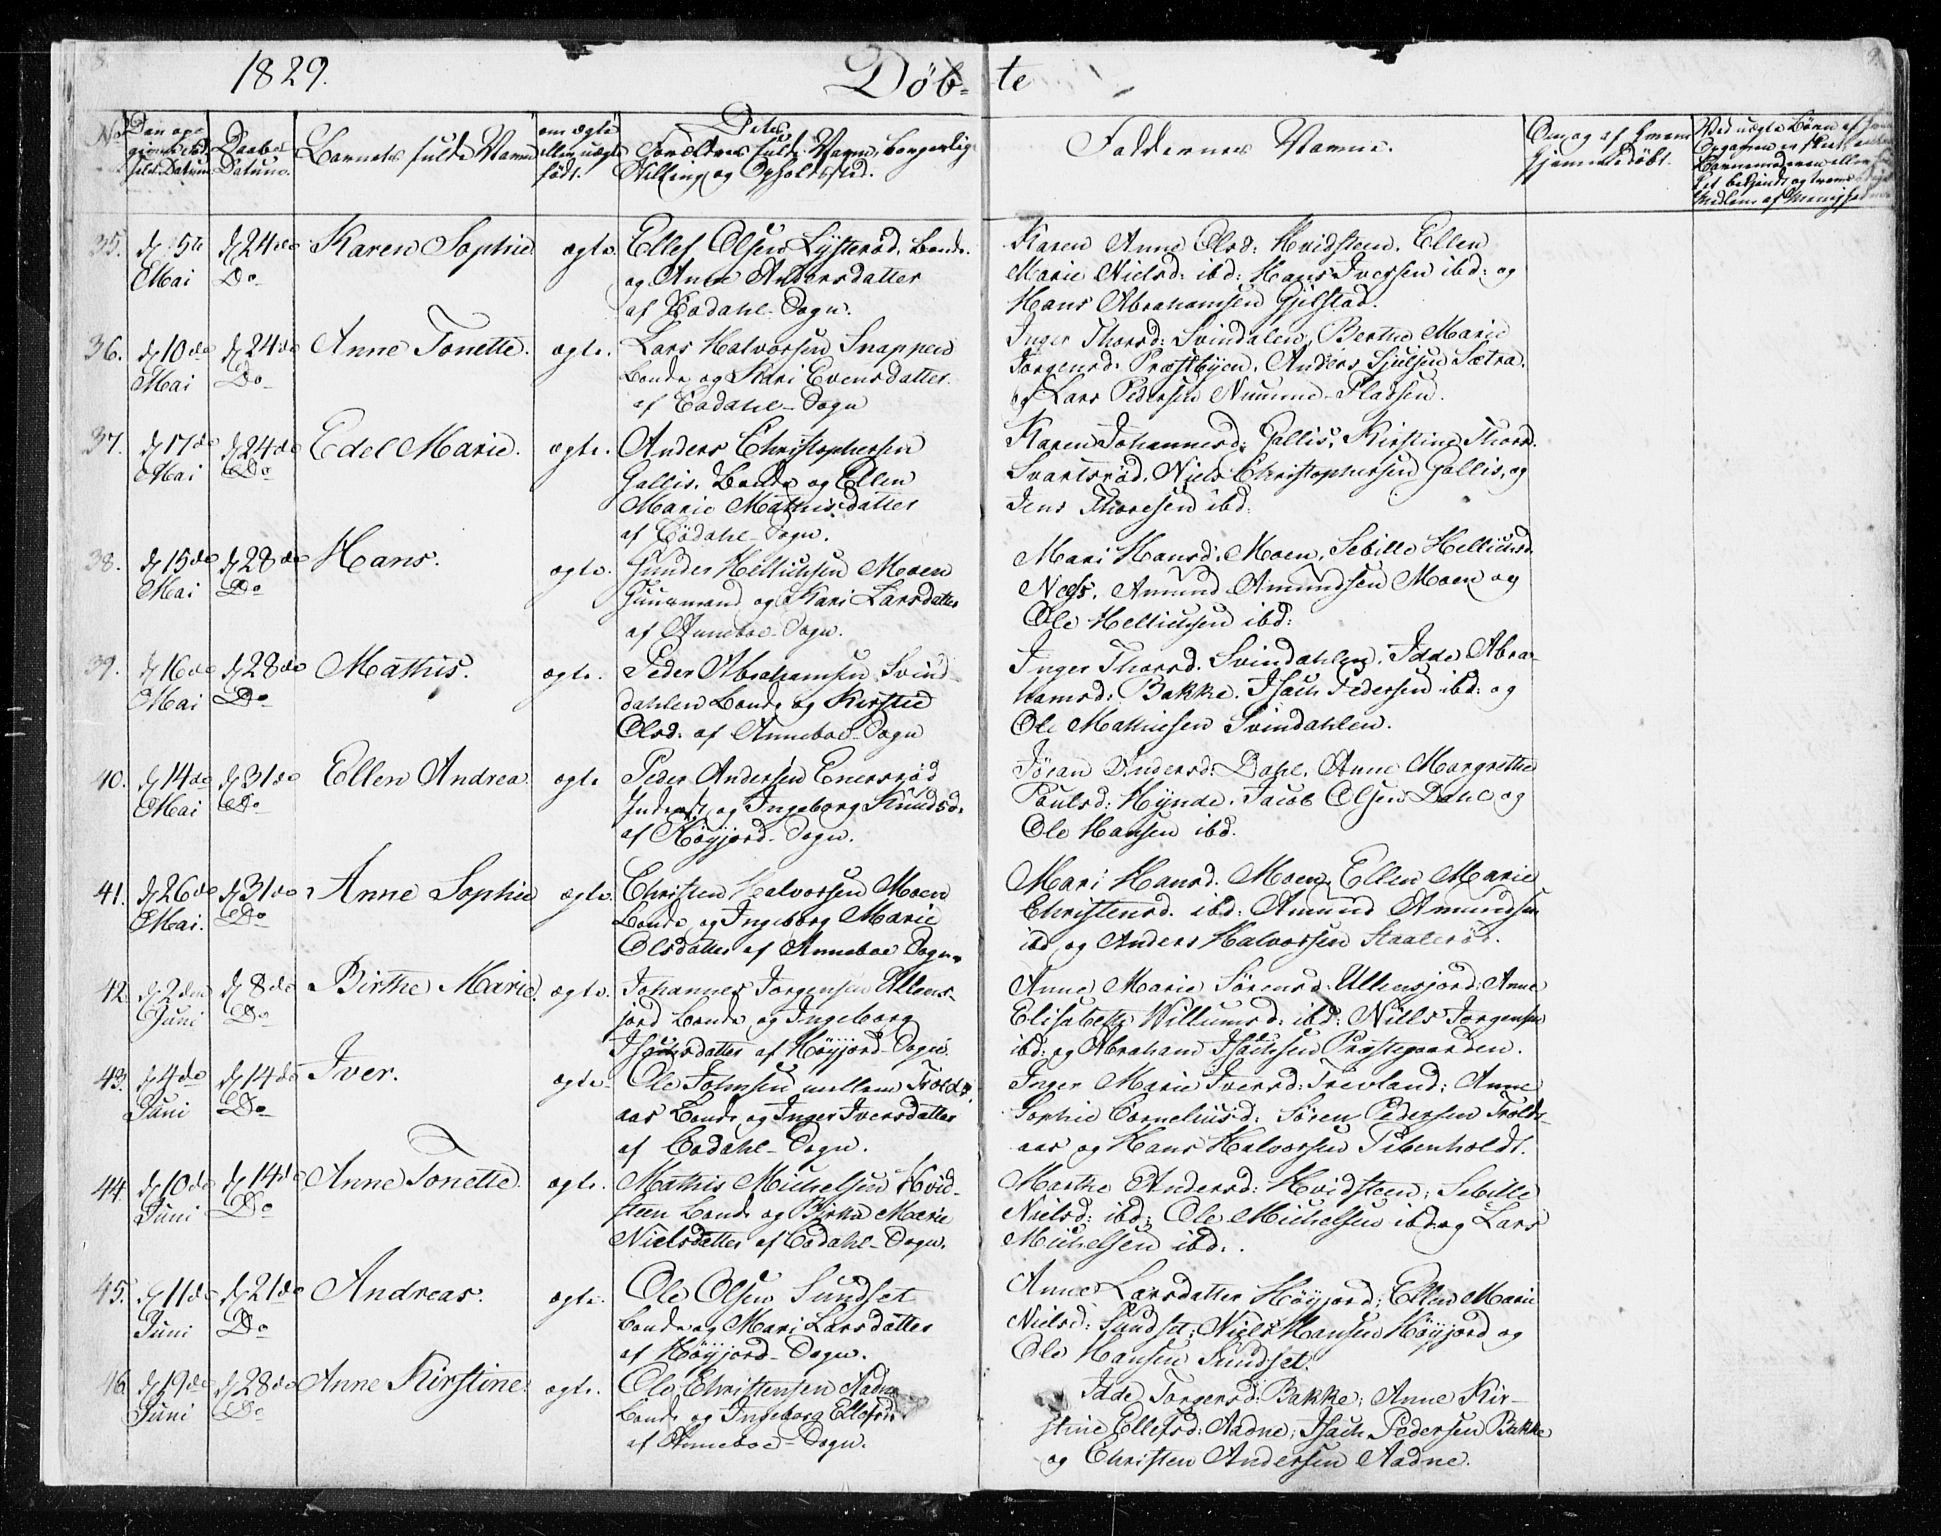 1829.
Døb-
te
No
Den opgivne Føds. Datum
Daabs Datum.
Barnets fulde Navn
om ægte eller uægte født.
Dets Forældres fulde Navne, borgerlig Stilling og Opholdsted.
Faddernes Navne.
Om og af hvem hjemmedøbt.
35. d 5te Mai
d 24de Do
Karen Sophie
ægte.
Ellef Olsen Lysterød, Bonde
og Anne Andersdatter
af Codahl-Sogn.
Karen Anne Olsd: Hvidsteen, Ellen
Marie Nielsd: ibd: Hans Iversen ibd: og
Hans Abrahamsen Gjelstad.
36. d 10de Mai
d 24de Do
Anne Tonette.
ægte.
Lars Halvorsen Snappen
Bonde og Kari Evensdatter
af Codahl-Sogn
Inger Thorsd: Svindalen, Berthe Marie
Jørgensd: Præstbyen, Anders Sjulsen Sætra
og Lars Pedersen Numme-Pladsen.
37. d 17de Mai
d 24de Do
Edel Marie.
ægte.
Anders Christophersen
Gallis, Bonde og Ellen
Marie Mathisdatter
af Codahl-Sogn.
Karen Johannesd: Gallis, Kirstine Thorsd:
Svartsrød, Niels Christophersen Gallis, og
Jens Thoresen ibd:
38. d 15de Mai
d 28de Do
Hans.
ægte.
Gunder Hellichsen Moen
Huusmand og Kari Larsdatter
af Anneboe-Sogn.
Mari Hansd: Moen, Sebille Hellichsd.
Næss, Amund Amundsen Moen og
Ole Hellichsen ibd:
39. d 16de Mai
d 28de Do
Mathis.
ægte.
Peder Abrahamsen Svind-
dahlen Bonde og Kirstie
Olsd. af Anneboe-Sogn
Inger Thorsd. Svindahlen, Idde Abra-
hamsd: Bakke, Isach Pedersen ibd: og
Ole Mathiesen Svindahlen.
40. d 14de Mai
d 31te Do
Ellen Andrea.
ægte
Peder Andersen Enersrød
Inderst og Ingeborg Knudsd.
af Høyjord-Sogn.
Jøran Andersd: Dahl, Anne Margrethe
Poulsd: Hynde, Jacob Olsen Dahl og
Ole Hansen ibd.
41. d 26de Mai.
d 31te Do
Anne Sophie
ægte.
Christen Halvorsen Moen
Bonde og Ingeborg Marie
Olsdatter af Anneboe Sogn.
Mari Hansd. Moen, Ellen Marie
Christensd. ibd: Amund Amundsen
ibd og Anders Halvorsen Staalerød.
42. d 2den Juni
d 8de Do
Birthe Marie.
ægte.
Johannes Jørgensen Ullens-
jord Bonde og Ingeborg
Isachsdatter af Høyjord-Sogn.
Anne Marie Sørensd: Ullensjord; Anne
Elisabeth Willumsd: ibd: Nills Jørgensen
ibd: og Abraham Isachsen Præstegaarden.
43. d 4de Juni
d 14de Do
Iver.
ægte.
Ole Johnsen mellem Trolds-
aas Bonde og Inger Iversdatter
af Codahl-Sogn.
Inger Marie Iversd: Trevland; Anne
Sophie Corneliusd: Søren Pedersen Trolds-
aas og Hans Halvorsen Tibenholdt.
44. d 10de Juni
d 14de Do
Anne Tonette.
ægte.
Mathis Michelsen Hvid-
steen Bonde og Birthe Marie
Nielsdatter af Codahl-Sogn.
Marthe Andersd: Hvidsteen; Sebille
Nielsd: ibd; Ole Michelsen ibd og Lars
Michelsen ibd.
45. d 11de Juni
d 21de Do
Andreas.
ægte.
Ole Olsen Sundset
Bonde og Mari Larsdatter
af Høyjord-Sogn.
Anne Larsdatter Høyjord; Ellen Marie
Nielsd: Sundset; Niels Hansen Høyjord og
Ole Hansen Sundset.
46. d 19de Juni
d 28de Do
Anne Kirstine.
ægte.
Ole Christensen Aadne
Bonde og Ingeborg Ellefsd.
af Anneboe-Sogn.
Idde Torgersd: Bakke; Anne Kir-
stine Ellefsd: Aadne; Isach Pedersen Bakke
og Christen Andersen Aadne.